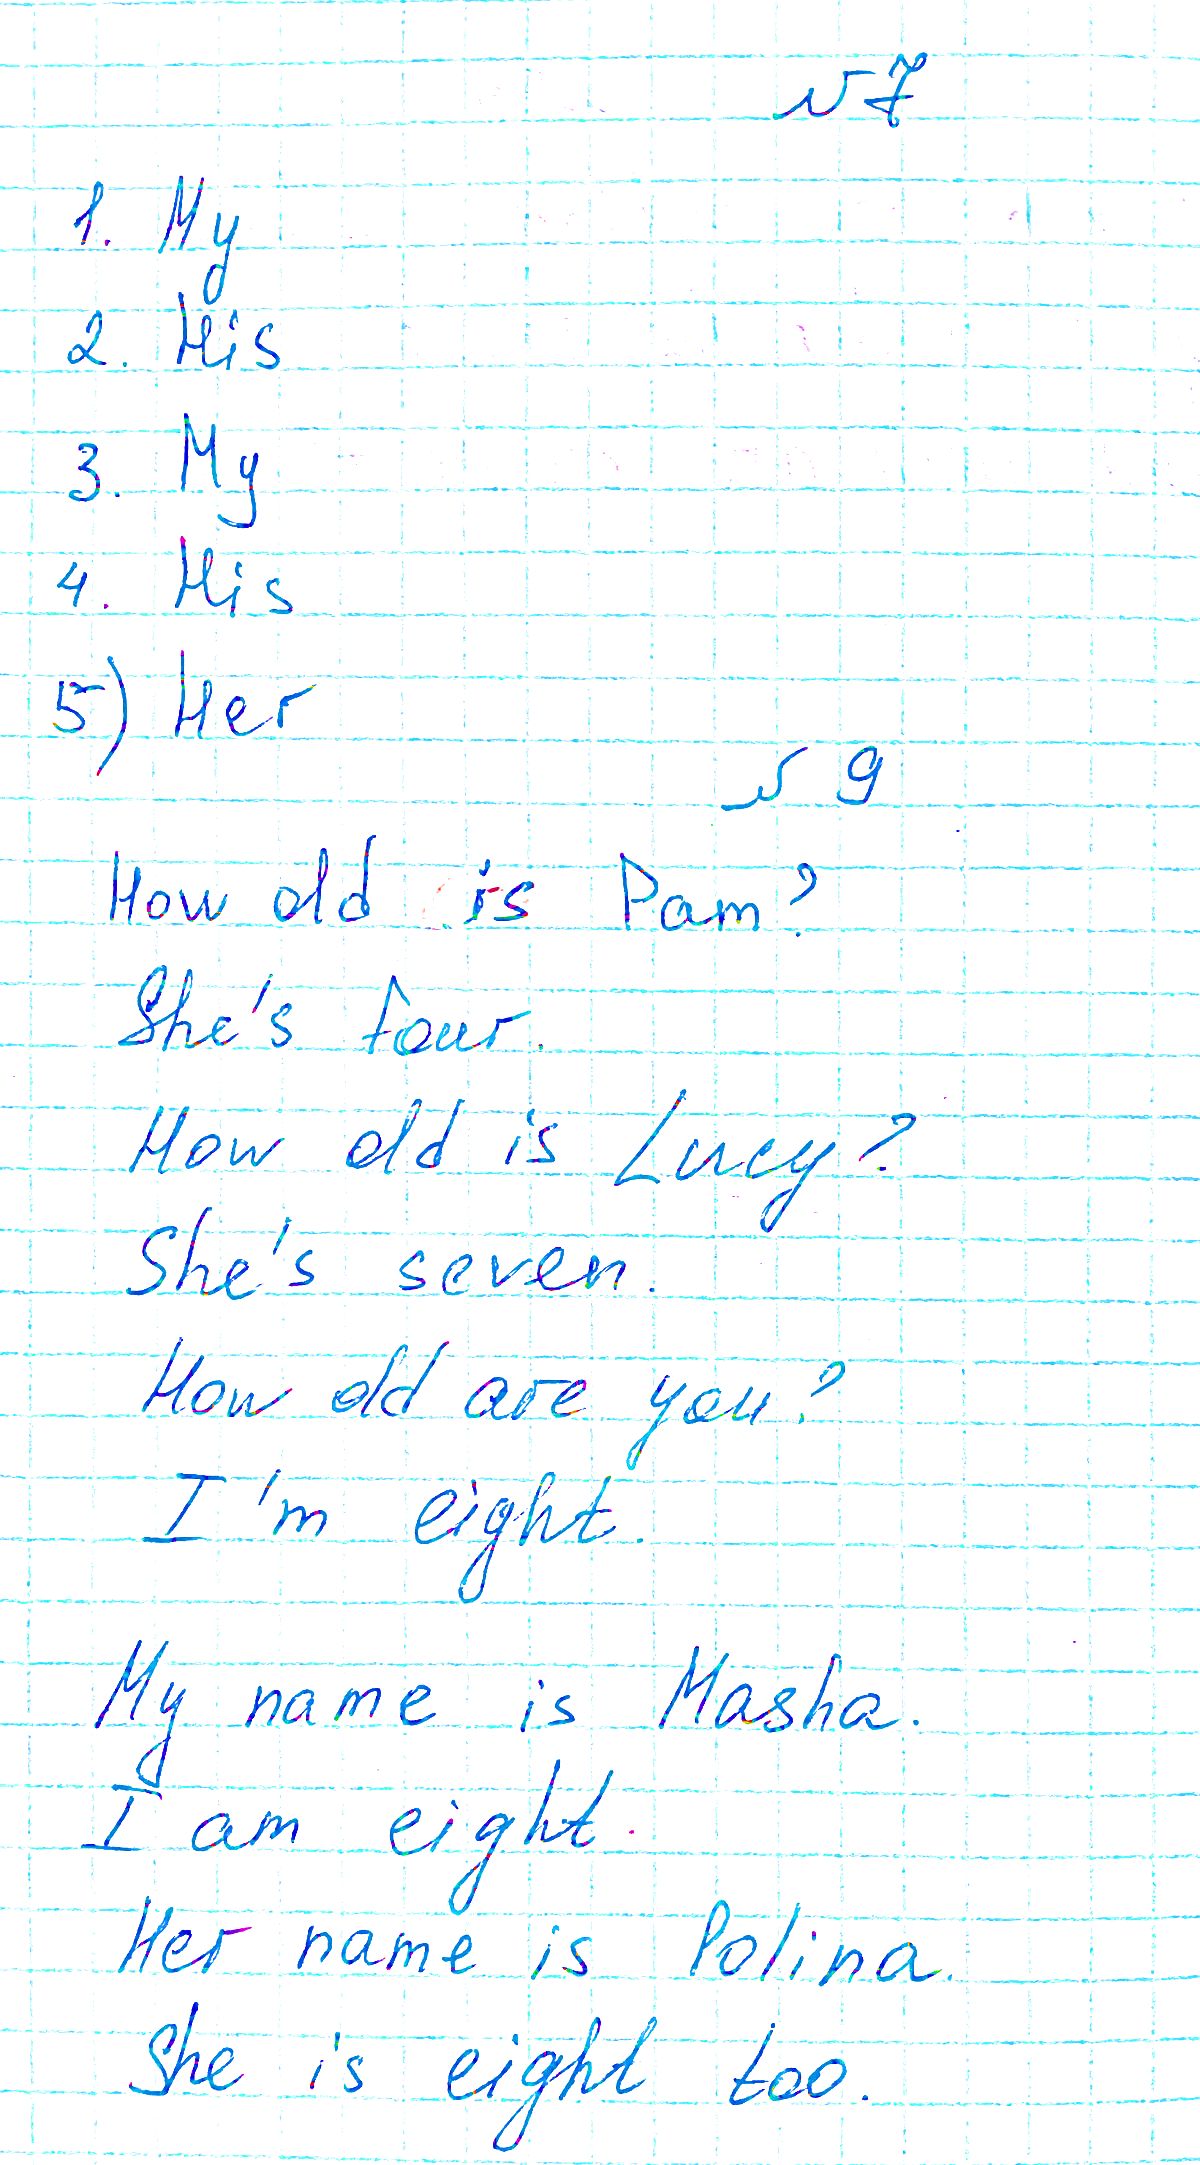 №7
1. My
2. His
3. My
4. His
5) Her
№ 9
How old is Pam?
She's four.
How old is Lucy?
She's seven.
How old are you?
I'm eight.
My name is Masha.
I am eight.
Her name is Polina.
She is eight too.